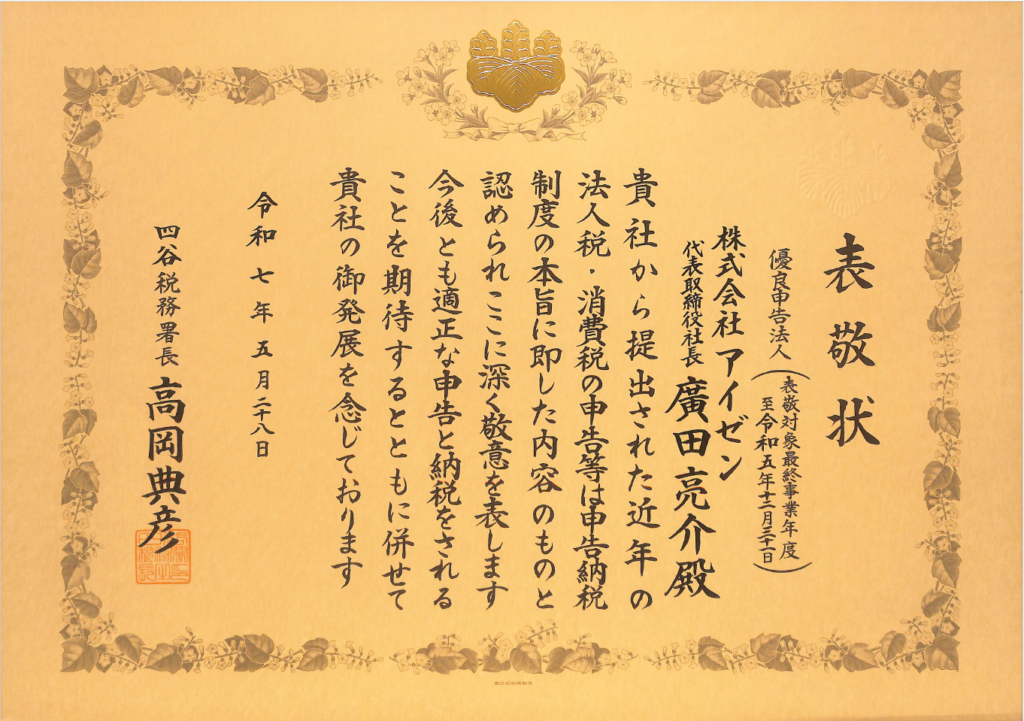 表敬状
優良申告法人
(表敬対象最終事業年度
至令和五年十二月三十一日)
株式会社アイゼン
代表取締役社長 廣田亮介殿
貴社から提出された近年の
法人税・消費税の申告等は申告納税
制度の本旨に即した内容のものと
認められここに深く敬意を表します
今後とも適正な申告と納税をされる
ことを期待するとともに併せて
貴社の御発展を念じております
令和七年五月二十八日
四谷税務署長 高岡典彦